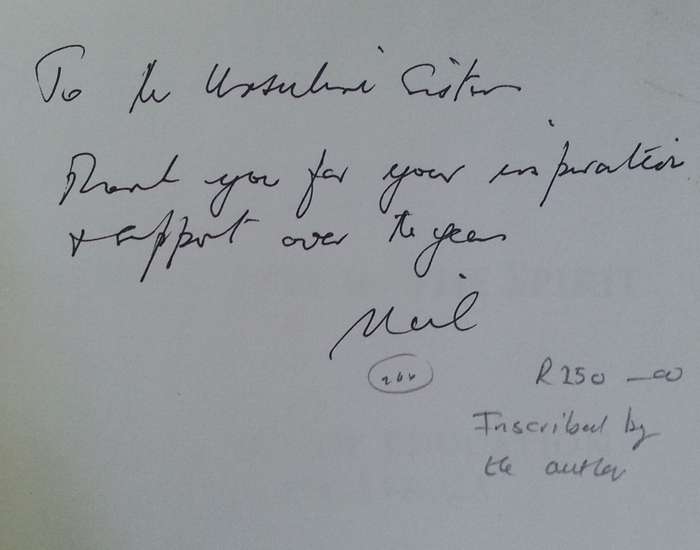 To the Ursuline Sisters
Thank you for your inspiration
& support over the years
Neil
R250 —00
Inscribed by
the author